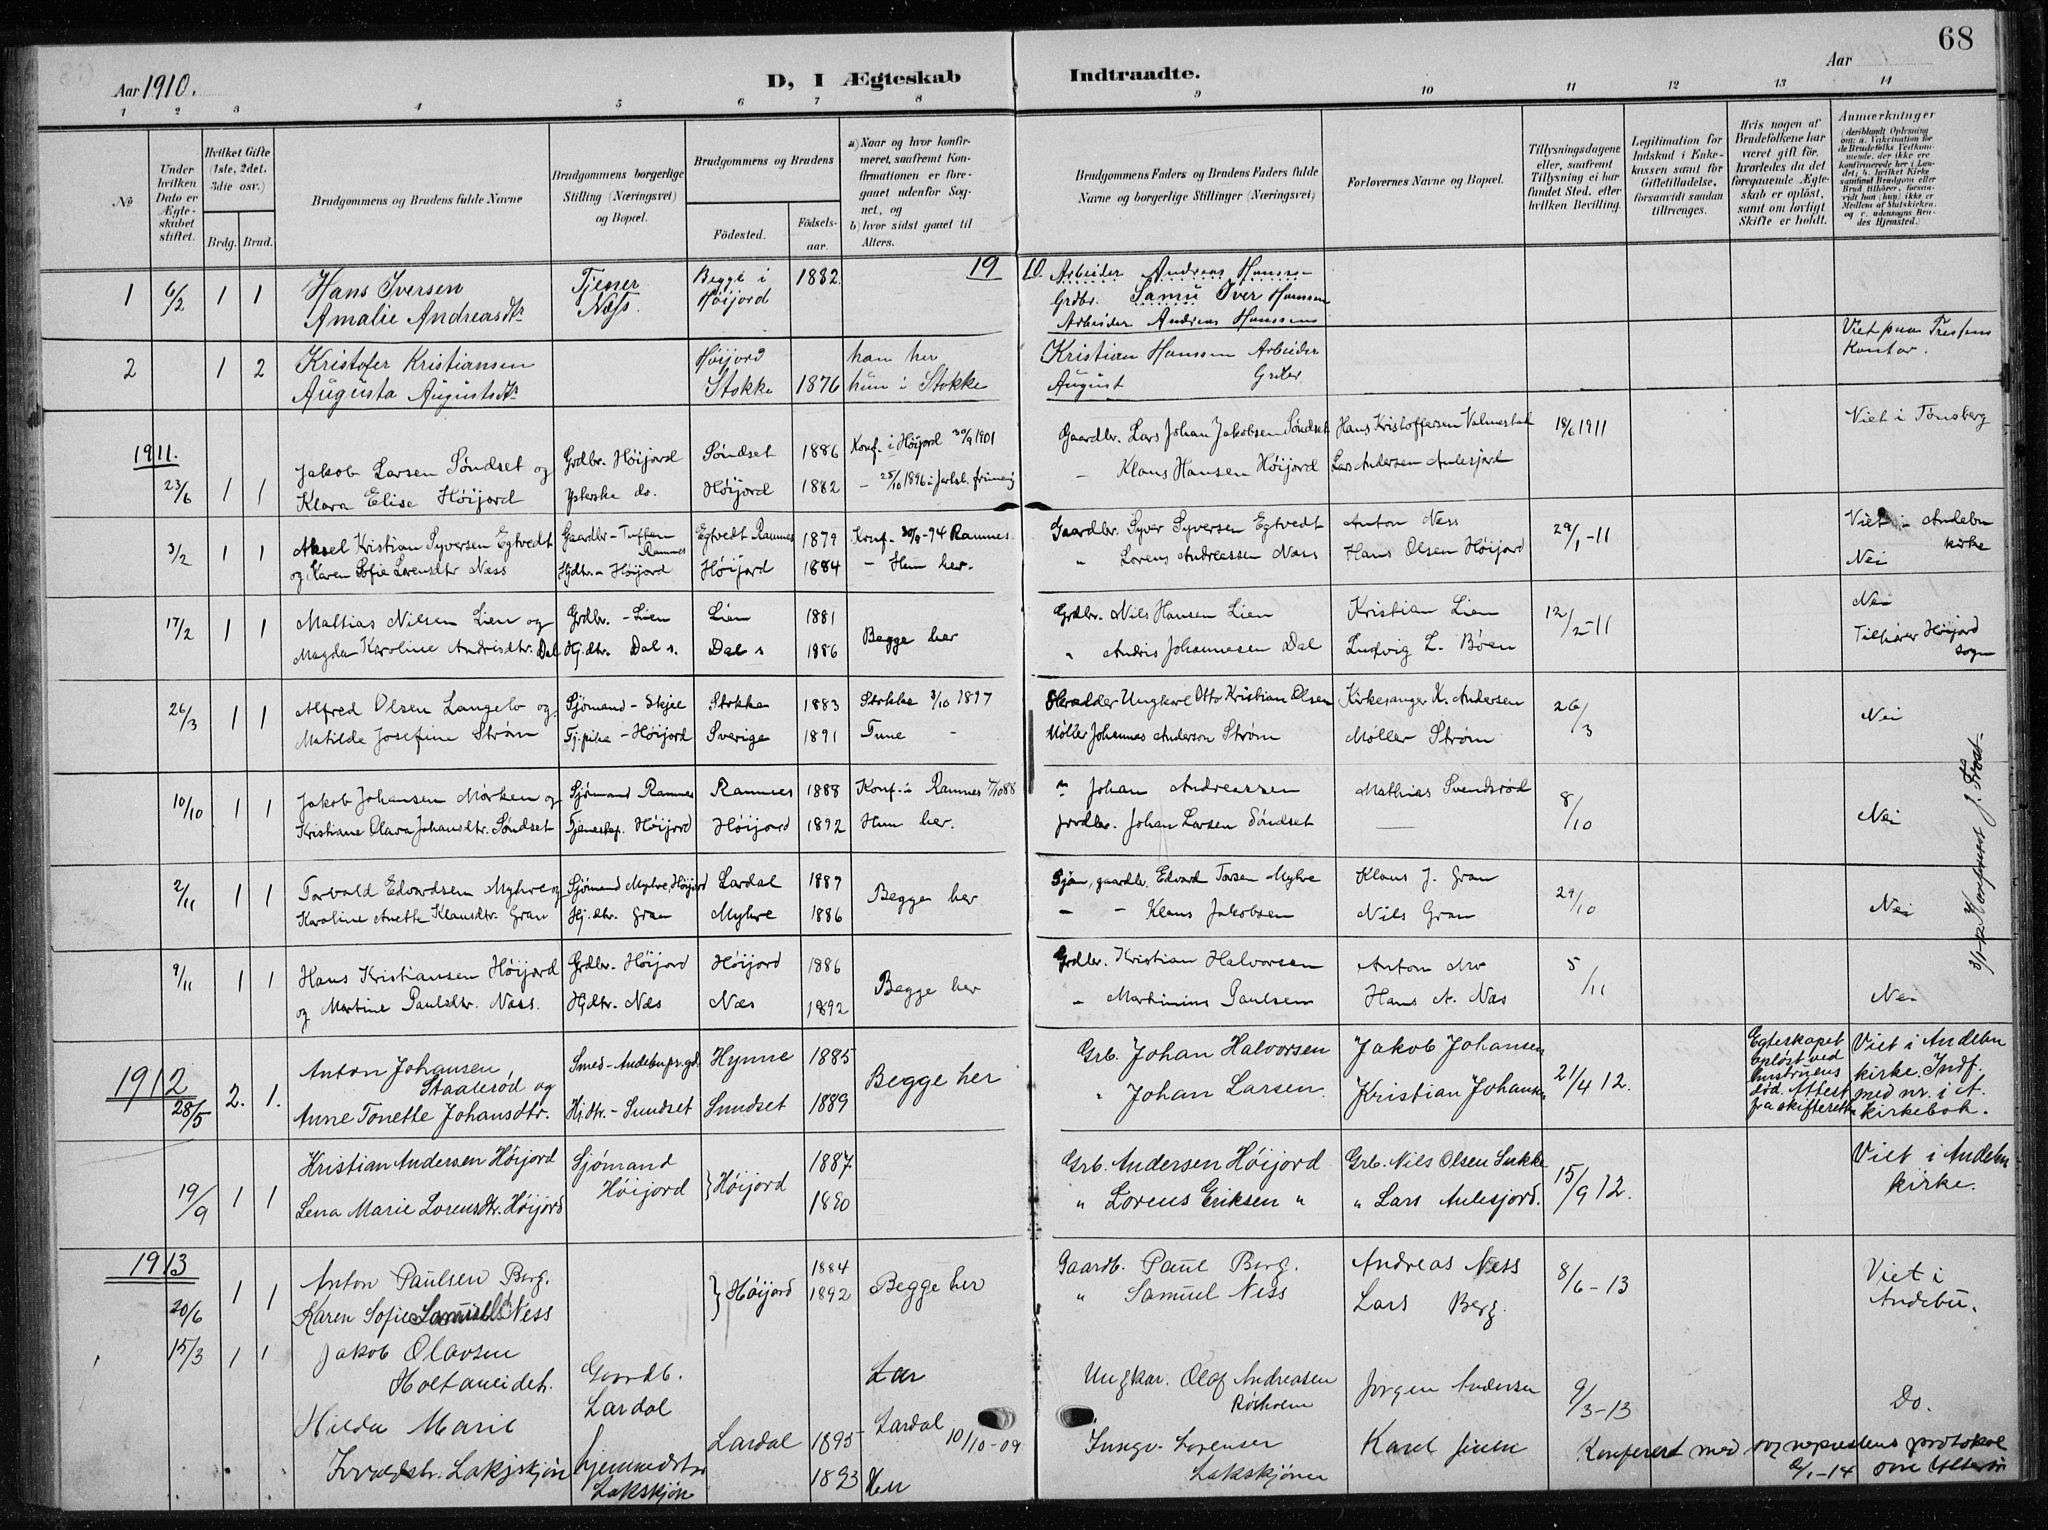 68
Aar 1910.
D, I Ægteskab Indtraadte.
Aar
1 2 3 4 5 6 7 8 9 10 11 12 13 14
No
Under hvilken Dato er Ægteskabet stiftet.
Hvilket Gifte (1ste, 2det, 3die osv.)
Brdg. Brud.
Brudgommens og Brudens fulde Navne
Brudgommens borgerlige Stilling (Næringsvei) og Bopæl.
Brudgommens og Brudens
Fødested. Fødselsaar.
a) Naar og hvor konfirmeret, saafremt Konfirmationen er foregaaet udenfor Sognet, og
b) hvor sidst gaaet til Alters.
Brudgommens Faders og Brudens Faders fulde Navne og borgerlige Stillinger (Næringsvei)
Forlovernes Navne og Bopæl.
Tillysningsdagene eller, saafremt Tillysning ei har fundet Sted, efter hvilken Bevilling.
Legitimation for Indskud i Enkekassen samt for Giftetilladelse, forsaavidt saadan tiltrænges.
Hvis nogen af Brudefolkene har været gift før, hvorledes da det foregaaende Ægteskab er opløst, samt om lovligt Skifte er holdt.
Anmærkninger
1 6/2 1 1 Hans Iversen Tjener Begge i 1882 19 10. Arbeider Andreas Hanssen
Amalie Andreasdtr Næss. Høijord Grdbr. Iver Hanssen
Arbeider Andreas Hanssen
2 1 2 Kristofer Kristiansen Høijord han her Kristian Hanssen Arbeider Viet paa
Augusta Augustsdtr Stokke 1876 hun i Stokke August Grdbr Kontor.
1911.
23/6 1 1 Jakob Larsen Søndset og Grdbr. Høijord Søndset 1886 Konf. i Høijord 30/9 1901 Gaardbr. Lars Johan Jakobsen Søndset Hans Kristoffersen Valmestad 18/6 1911 Viet i Tønsberg
Klara Elise Høijord Ysterske do. Høijord 1882 - 25/10 1896 i Jarlsb. frimenig - Klaus Hansen Høijord Lars Andersen Aulesjord
3/2 1 1 Aksel Kristian Syversen Egtvedt Gaardbr - Tuften Ramnes Egtvedt Ramnes 1879 Konf. -94 Ramnes. Gaardbr. Syver Syversen Egtvedt Anton Ness 29/1-11 Viet i Andebu kirke
og Karen Sofie Lorensdtr Næss Hjdtr. - Høijord Høijord 1884 - Hun her. " Lorens Andreassen Næss Hans Olsen Høijord Nei
17/2 1 1 Mathias Nilsen Lien og Grdbr. - Lien Lien 1881 Begge her Grdbr. Nils Hansen Lien Kristian Lien 12/2-11 Nei
Magda Karoline Andrisdtr. Dal Hj.dtr. Dal s. Dal s 1886 " Andris Johannesen Dal Ludvig L. Bøen Tilhører Høijord sogn
26/3 1 1 Alfred Olsen Langelo og Sjømand - Skjel Stokke 1883 Stokke 3/10 1897 Skrædder Ungkarl Otto Kristian Olsen Kirkesanger K. Andersen 26/3 Nei
Matilde Josefine Strøm Tj.pike - Høijord Sverige 1891 Tune - Møller Johannes Anderson Strøm Møller Strøm
10/10 1 1 Jakob Johansen Mørken og Sjømand Ramnes Ramnes 1888 Konf. i Ramnes " Johan Andreassen Mathias Svendsrød 8/10 Nei
Kristiane Olava Johansdtr. Søndset Tjenestep. Høijord Høijord 1892 Hun her. Johan Larsen Søndset —
2/11 1 1 Torvald Edvardsen Myhre og Sjømand Myhre, Høijord Lardal 1887 Begge her Sjøm, gaardbr. Edvard Torsen Myhre Klaus J. Gran 29/10 Nei
Karoline Anette Klausdtr. Gran Hj.dtr. Gran Myhre 1886 - - Klaus Jakobsen Nils Gran
9/11 1 1 Hans Kristiansen Høijord Grdbr. Høijord Høijord 1886 Begge her Grdbr. Kristian Halvorsen Anton Mo 5/11 Nei
og Martine Paulsdtr. Næss. Hjdtr. - Næs Næs 1892 " Martinius Paulsen Hans A. Næs
3/1-12 Konfereret J. Trost-
1912
28/5 2. 1. Anton Johansen Staalerød og Smed - Andebu pr.gd. Hynne 1885 Begge her Grb. Johan Halvorsen Jakob Johansen 21/4 12. Egteskapet opløst ved hustruens død. Attest fra skifteretten Viet i Andebu kirke. Indf. med nr. i A. kirkebok.
Anne Tonette Johansdtr. Hjdtr. - Sundset Sundset 1889 " Johan Larsen. Kristian Johansen
19/9 1 1 Kristian Andersen Høijord Sjømand Høijord } Høijord 1887. Grb. Andersen Høijord Grb. Nils Olsen Sukke 15/9 12. Viet i Andebu kirke.
Lena Marie Lorensdtr. Høijord 1890 " Lorens Eriksen " " Lars Aulesjord.
1913
20/6 1 1 Anton Paulsen Berg. } Høijord 1884 Begge her Gaardb. Paul Berg. Andreas Ness 8/6-13 Viet i Andebu.
Karen Sofie Ness 1892 " Samuel Ness Lars Berg.
15/3 1 1 Jakob Olavsen Holtaneidet. Gaardb. Lardal Lar Ungkar. Olaf Andreasen Jørgen Andersen 9/3-13 Do.
Hilda Marie Lakjskjøn hjemmedtr Lakskjøn Lardal 1895 1893 Lardal 10/10-09 Her Lorenser Lakskjønn Karl
Konferert med sogneprestens protokol
2/1-14